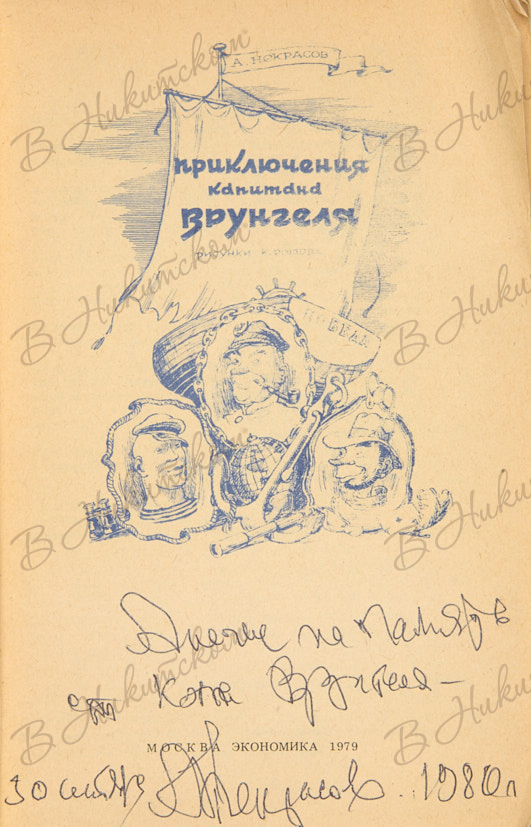 А. НЕКРАСОВ
ПРИКЛЮЧЕНИЯ
КАПИТАНА
ВРУНГЕЛЯ
рисунки К. Ротова
ПОБЕДА
на память
от Кап Врунгеля —
МОСКВА ЭКОНОМИКА 1979
30 сентяб А Некрасов. 1980 г
В Никитском
В Никитском
В Никитском
В Никитском
В Никитском
В Никитском